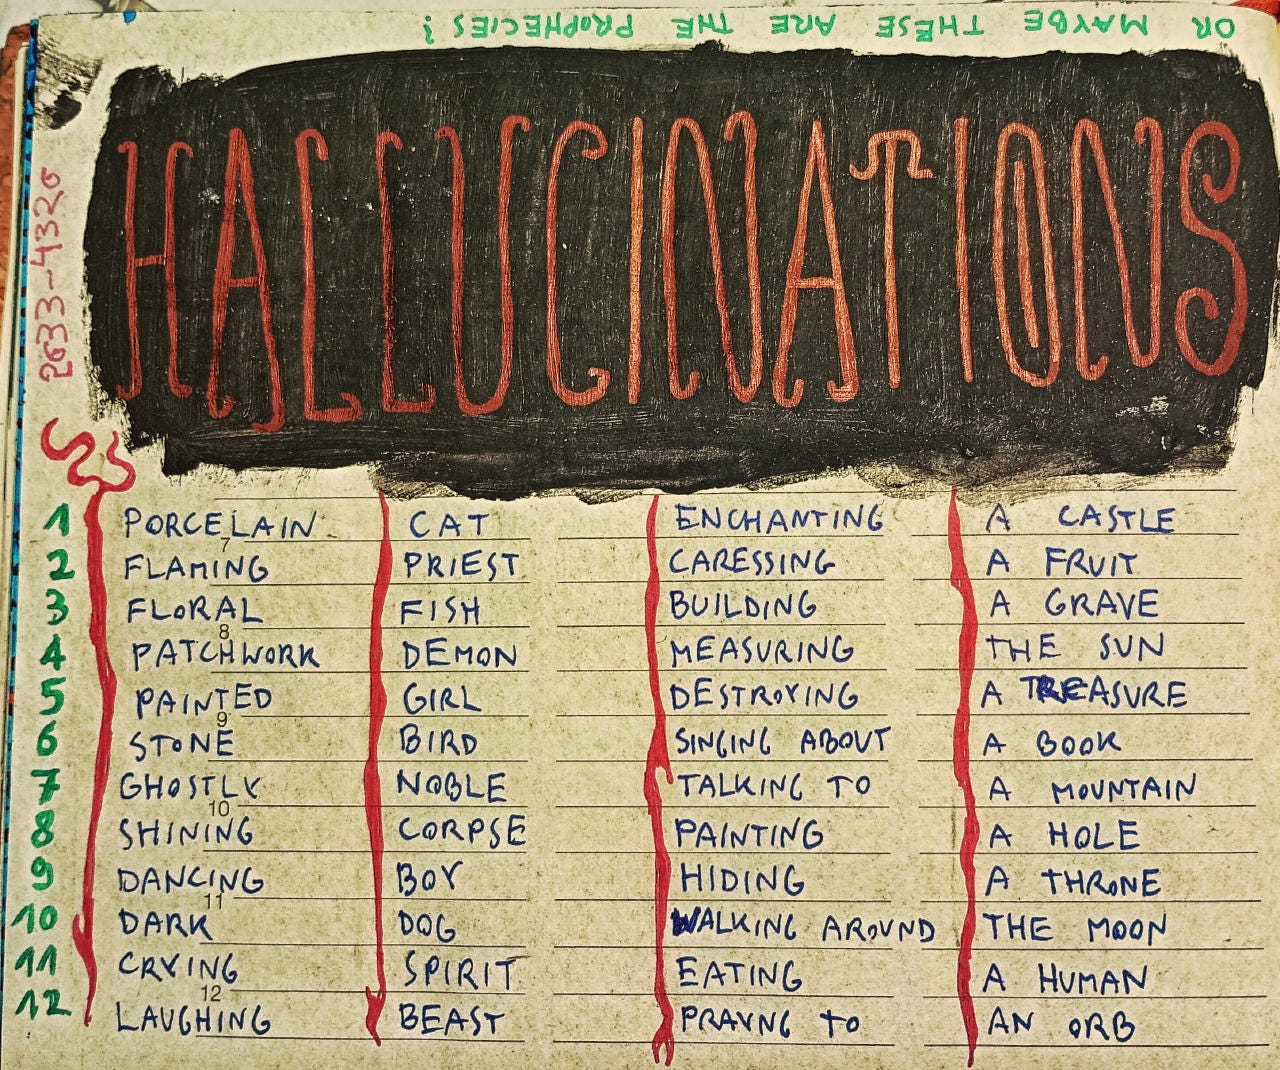 OR MAYBE THESE ARE THE PROPHECIES?
HALLUCINATIONS
2633-4320
1 PORCELAIN CAT ENCHANTING A CASTLE
7
2 FLAMING PRIEST CARESSING A FRUIT
3 FLORAL FISH BUILDING A GRAVE
8
4 PATCHWORK DEMON MEASURING THE SUN
5 PAINTED GIRL DESTROYING A TREASURE
9
6 STONE BIRD SINGING ABOUT A BOOK
7 GHOSTLY NOBLE TALKING TO A MOUNTAIN
10
8 SHINING CORPSE PAINTING A HOLE
9 DANCING BOY HIDING A THRONE
11
10 DARK DOG WALKING AROUND THE MOON
11 CRYING SPIRIT EATING A HUMAN
12
12 LAUGHING BEAST PRAYNG TO AN ORB